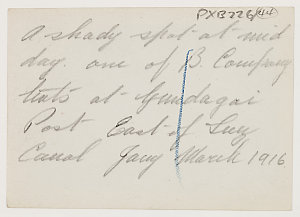 PXB226/44
A shady spot at mid
day. one of B. Company
tents at Gundagai
Post East of Suez
Canal Jany March 1916